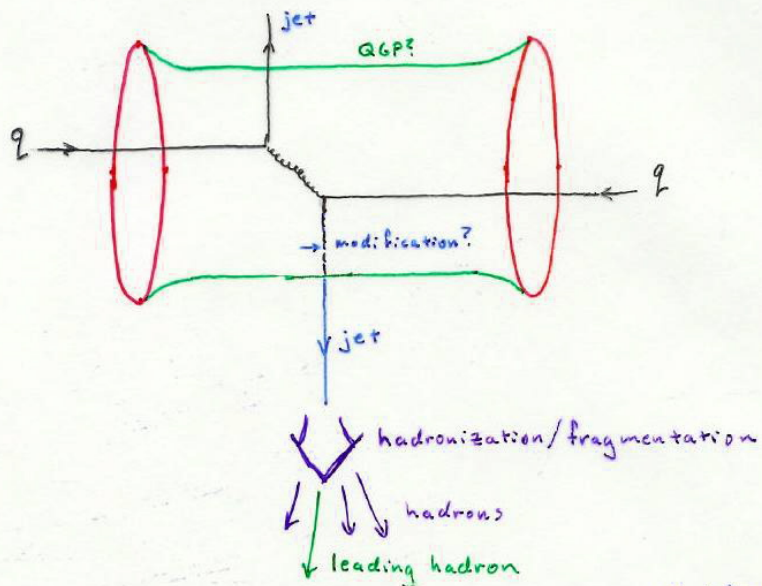 jet
QGP?
q
q
modification?
jet
hadronization/fragmentation
hadrons
leading hadron